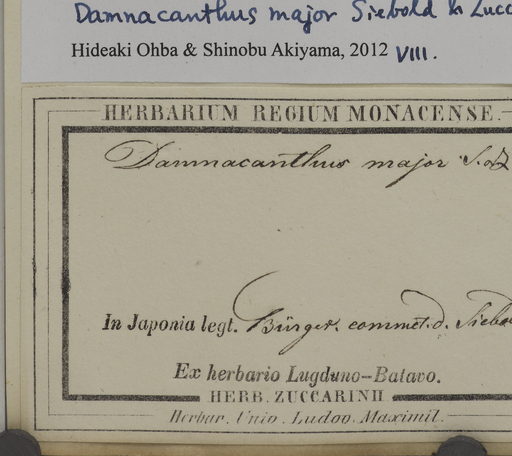 Damnacanthus major Siebold & Zucc
Hideaki Ohba & Shinobu Akiyama, 2012 VIII.
HERBARIUM REGIUM MONACENSE.
Damnacanthus major S. & Z
In Japonia legt. Bürger. commct. d. Siebo
Ex herbario Lugduno-Batavo.
HERB. ZUCCARINII.
Herbar. Univ. Ludov. Maximil.